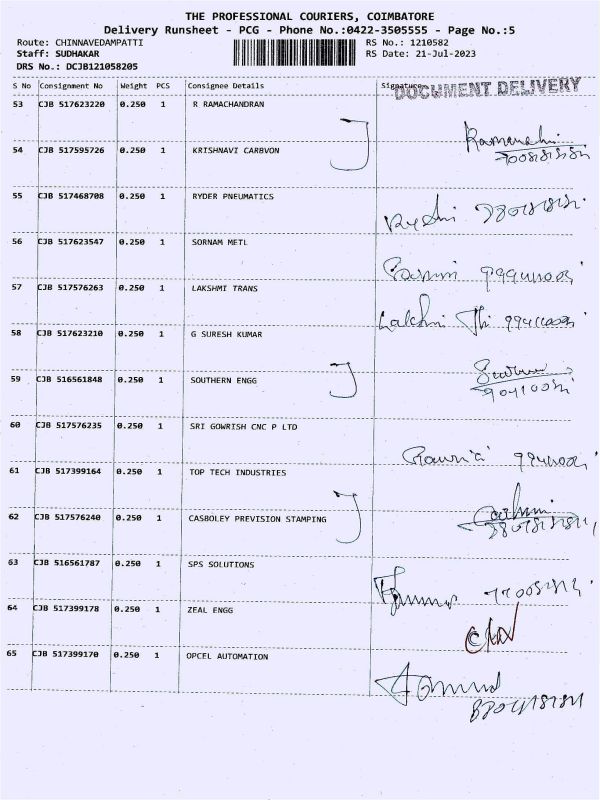 THE PROFESSIONAL COURIERS, COIMBATORE
Delivery Runsheet - PCG - Phone No.:0422-3505555 - Page No.:5
Route: CHINNAVEDAMPATTI RS No.: 1210582
Staff: SUDHAKAR RS Date: 21-Jul-2023
DRS No.: DCJB121058205
S No Consignment No Weight PCS Consignee Details Signature
DOCUMENT DELIVERY
53 CJB 517623220 0.250 1 R RAMACHANDRAN
54 CJB 517595726 0.250 1 KRISHNAVI CARBVON
55 CJB 517468708 0.250 1 RYDER PNEUMATICS
56 CJB 517623547 0.250 1 SORNAM METL
57 CJB 517576263 0.250 1 LAKSHMI TRANS
Lakshmi
58 CJB 517623210 0.250 1 G SURESH KUMAR
59 CJB 516561848 0.250 1 SOUTHERN ENGG
60 CJB 517576235 0.250 1 SRI GOWRISH CNC P LTD
61 CJB 517399164 0.250 1 TOP TECH INDUSTRIES
62 CJB 517576240 0.250 1 CASBOLEY PREVISION STAMPING
63 CJB 516561787 0.250 1 SPS SOLUTIONS
64 CJB 517399178 0.250 1 ZEAL ENGG
65 CJB 517399170 0.250 1 OPCEL AUTOMATION